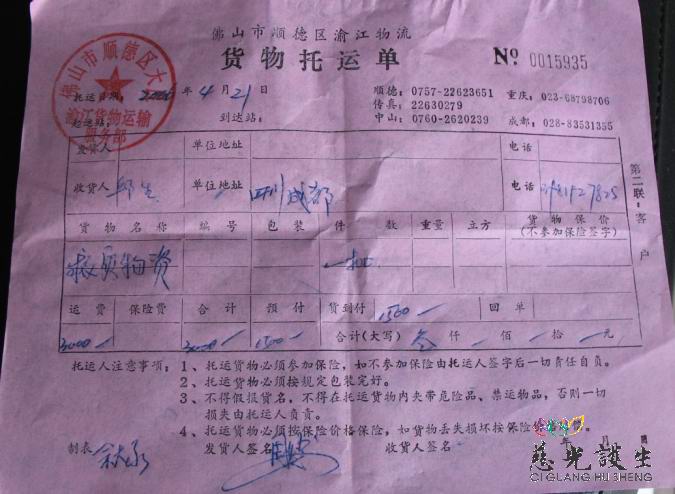 佛山市顺德区渝江物流
货物托运单 № 0015935
佛山市顺德区大
渝江货物运输
服务部
托运日期: 年 4 月 21 日 顺德: 0757-22623651 重庆: 023-68798706
传真: 22630279
起运站: 到达站: 中山: 0760-2620239 成都: 028-83531355
发货人 单位地址 电话
收货人 邱生 单位地址 四川成都 电话
第二联:客户
货物名称 编号 包装 件数 重量 立方 货物保价
(不参加保险签字)
救灾物资 一批
运费 保险费 合计 预付 货到付 1500— 回单
3000— 3000— 1500— 合计(大写) 叁 仟 — 佰 — 拾 — 元
托运人注意事项: 1、托运货物必须参加保险, 如不参加保险由托运人签字后一切责任自负。
2、托运货物必须按规定包装完好。
3、不得假报货名, 不得在托运货物内夹带危险品、禁运物品, 否则一切
损失由托运人负责。
4、托运货物必须按保险价格保险, 如货物丢失损坏按保险价
制表 发货人签名 收货人签名 年 月 日
慈光護生
CI GUANG HU SHENG